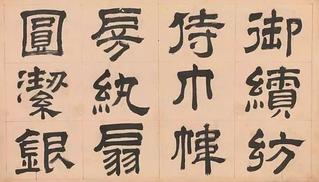 御績紡
侍巾帷
房紈扇
圓潔銀